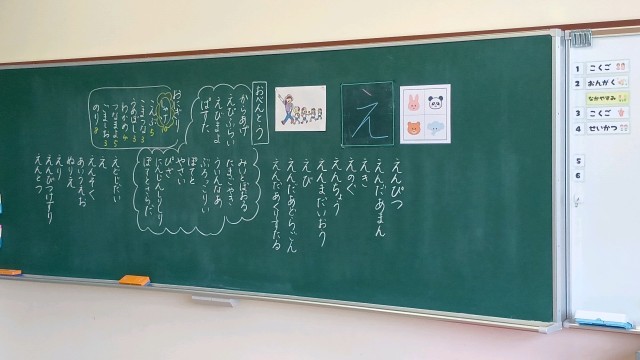 え
えんぴつ
えんだあまん
えき
えのぐ
えんちょう
えんまだいおう
えび
えんだあどらごん
えんだあくりすたる
おべんとう
からあげ
えびふらい
えびまよ
ぱすた
みいとぼおる
たまごやき
ういんなあ
ぶろっこりい
ぽてと
やさい
ぴざ
にんじんしりしり
ぽてとさらだ
おにぎり
しゃけ
こんぶ 5
こまつな 3
うめぼし 3
わかめ 4
つなまよ 5
ごましお 3
のり 8
えどじだい
え
えんそく
あいうえお
ぬりえ
えり
えんぴつけずり
えんとつ
1 こくご
2 おんがく
なかやすみ
3 こくご
4 せいかつ
5
6